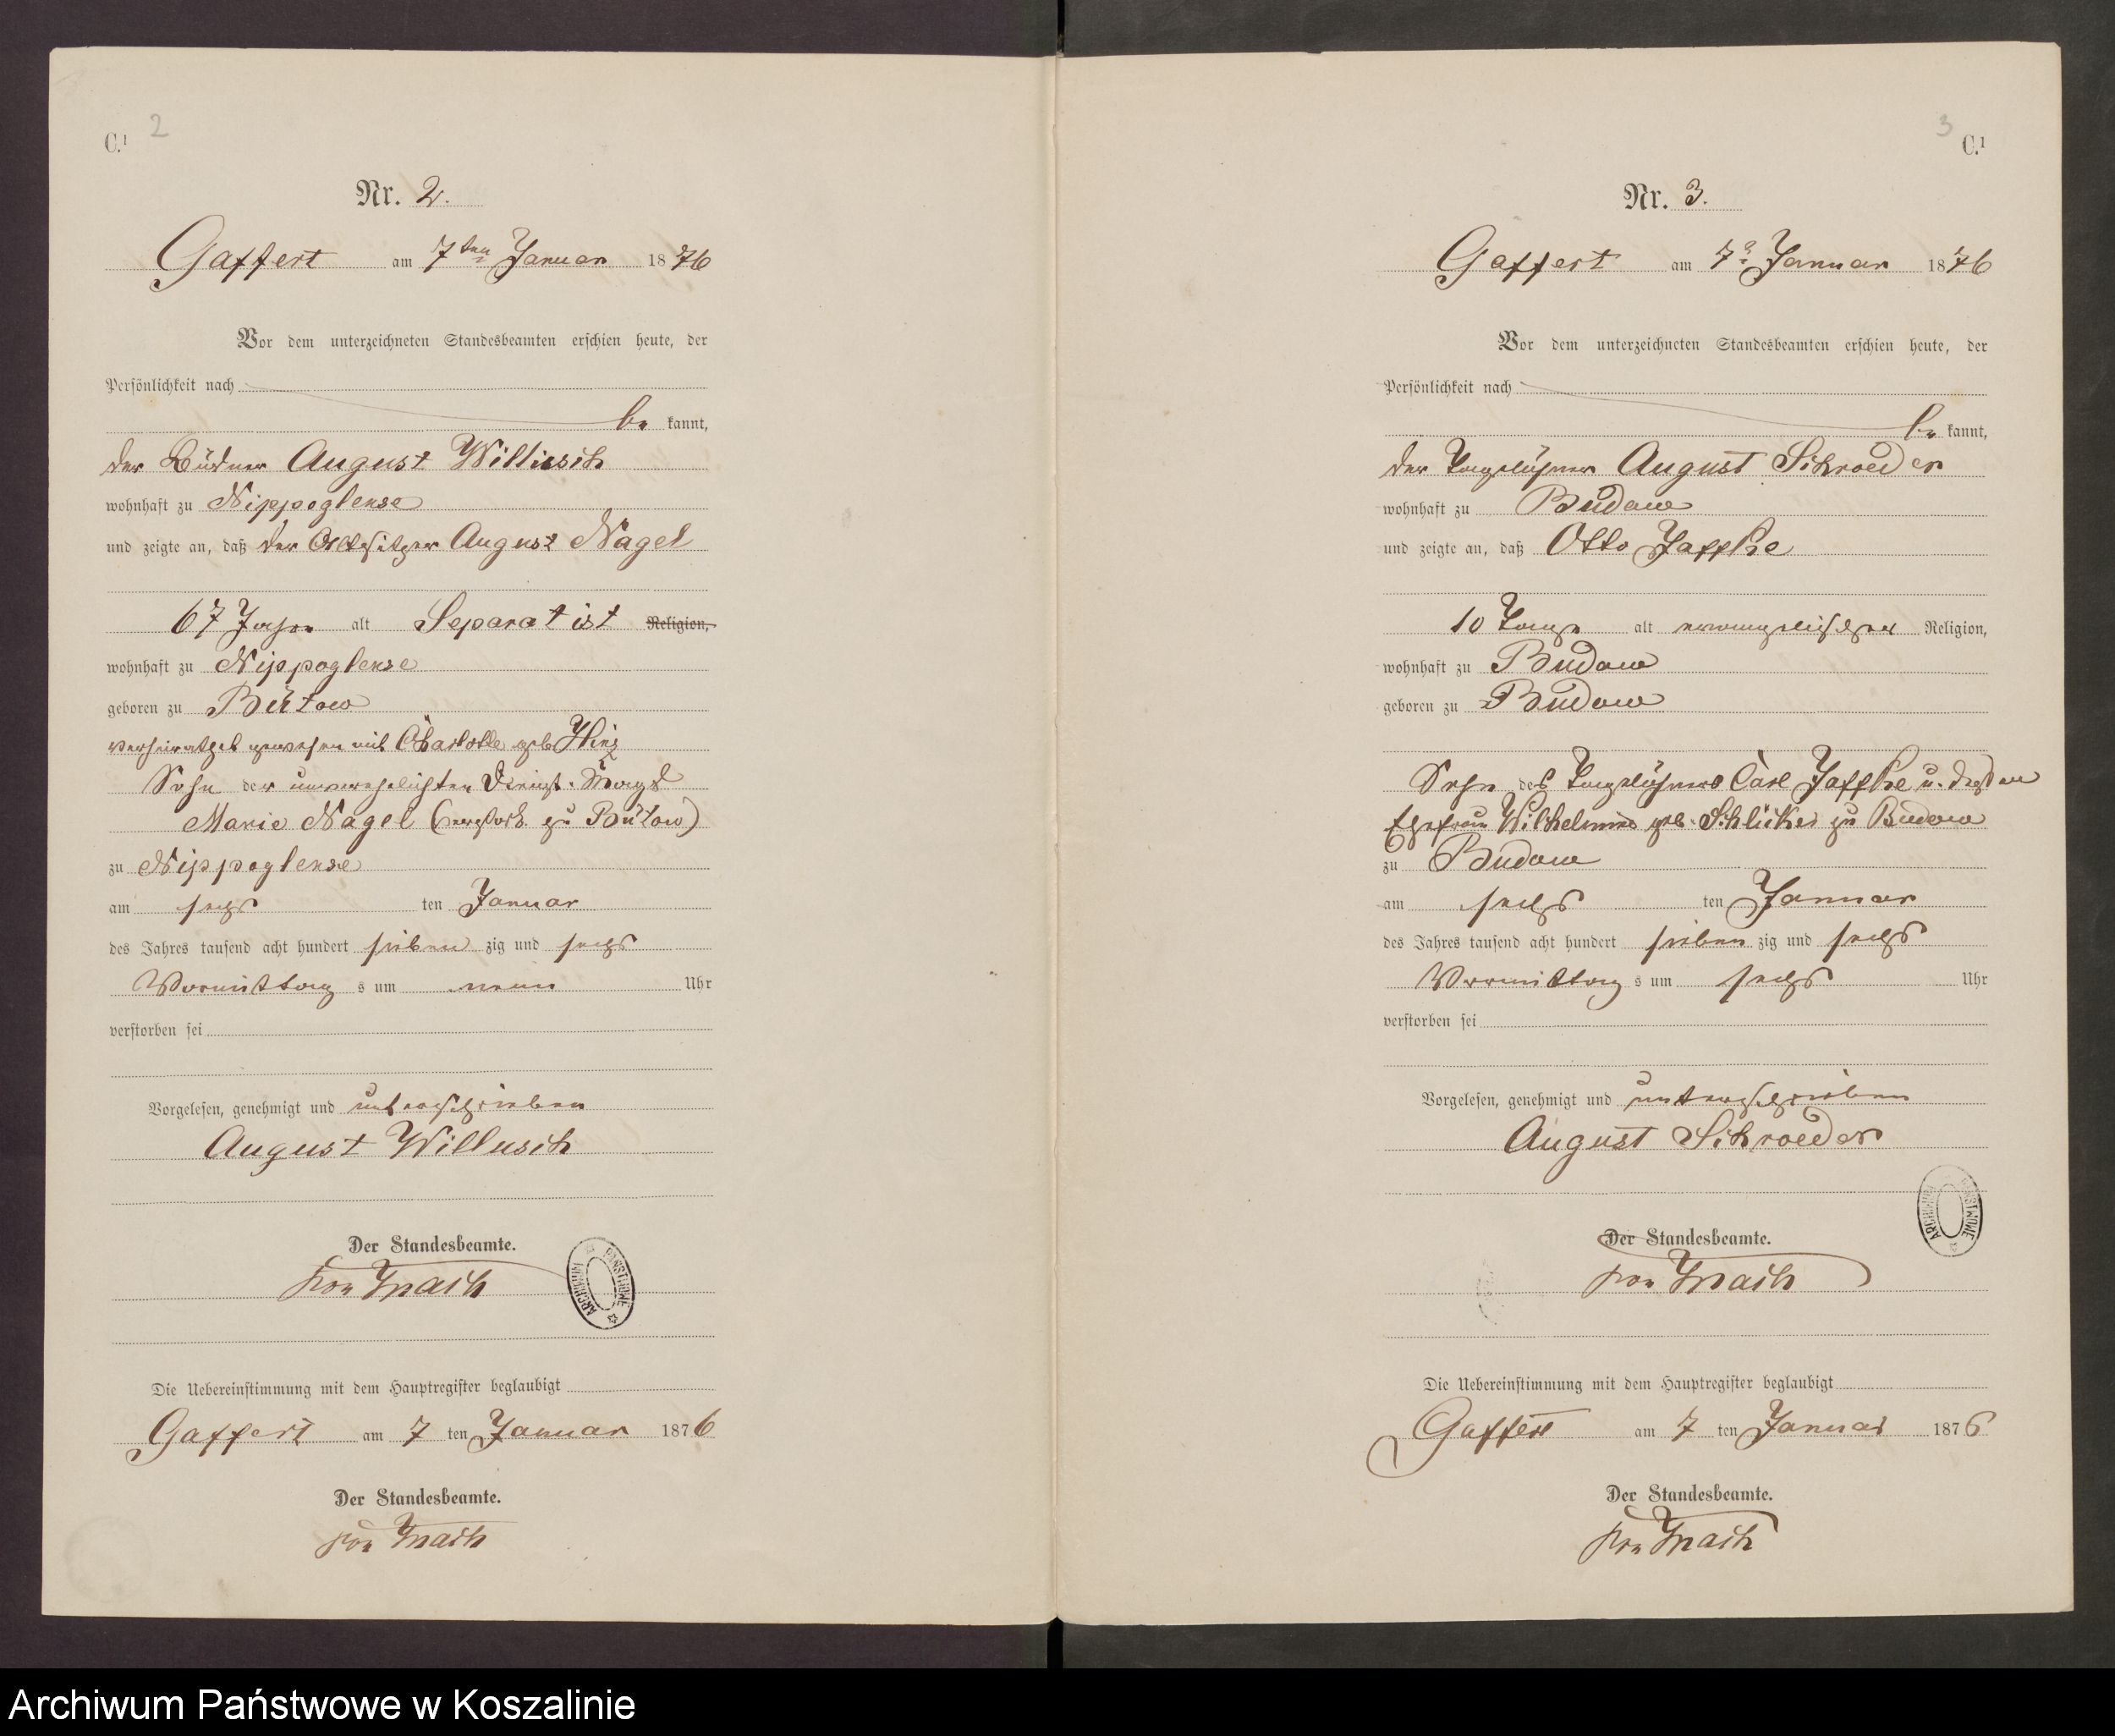 C.¹ 2
Nr. 2.
Gaffert am 7ten Januar 1876
Vor dem unterzeichneten Standesbeamten erschien heute, der
Persönlichkeit nach
be kannt,
der Büdner August Willusch
wohnhaft zu Nippoglense
und zeigte an, daß der Altsitzer August Nagel
67 Jahre alt Separatist Religion,
wohnhaft zu Nippoglense
geboren zu Bütow
verheirathet gewesen mit Charlotte geb
Sohn der unverehelichten Dienst-Magd
Marie Nagel (verstorb. zu Bütow)
zu Nippoglense
am sechs ten Januar
des Jahres tausend acht hundert sieben zig und sechs
Vormittag s um neun Uhr
verstorben sei
Vorgelesen, genehmigt und unterschrieben
August Willusch
Der Standesbeamte.
von Mach
ARCHIWUM PAŃSTWOWE
Die Uebereinstimmung mit dem Hauptregister beglaubigt
Gaffert am 7 ten Januar 1876
Der Standesbeamte.
von Mach
3 C.¹
Nr. 3.
Gaffert am 7t Januar 1876
Vor dem unterzeichneten Standesbeamten erschien heute, der
Persönlichkeit nach
be kannt,
der Tagelöhner August Schroeder
wohnhaft zu Budow
und zeigte an, daß Otto Jaffke
10 Tage alt evangelischer Religion,
wohnhaft zu Budow
geboren zu Budow
Sohn des Tagelöhners Carl Jaffke u. dessen
Ehefrau Wilhelmine geb. zu Budow
zu Budow
am sechs ten Januar
des Jahres tausend acht hundert sieben zig und sechs
Vormittag s um sechs Uhr
verstorben sei
Vorgelesen, genehmigt und unterschrieben
August Schroeder
ARCHIWUM PAŃSTWOWE
Der Standesbeamte.
von Mach
Die Uebereinstimmung mit dem Hauptregister beglaubigt
Gaffert am 7 ten Januar 1876
Der Standesbeamte.
von Mach
Archiwum Państwowe w Koszalinie